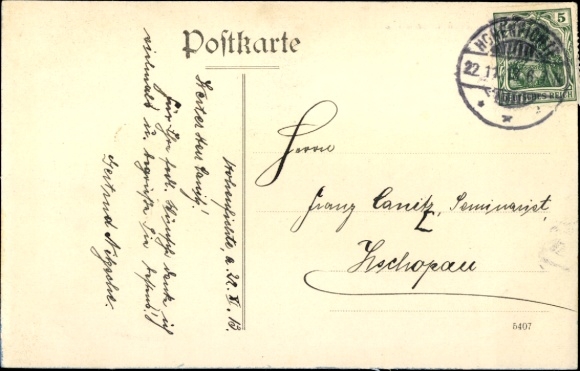 Postkarte
Hohenfichte, a. 22. XI. 13.
Werter Herr Canitz!
Für Ihre frdl. Wünsche danke ich
vielmals u. begrüße Sie bestens!
Gertrud Nitzsche.
Herrn
Franz Canitz, Seminarist,
Zschopau
HOHENFICHTE
22.11.
5
DEUTSCHES REICH
5407